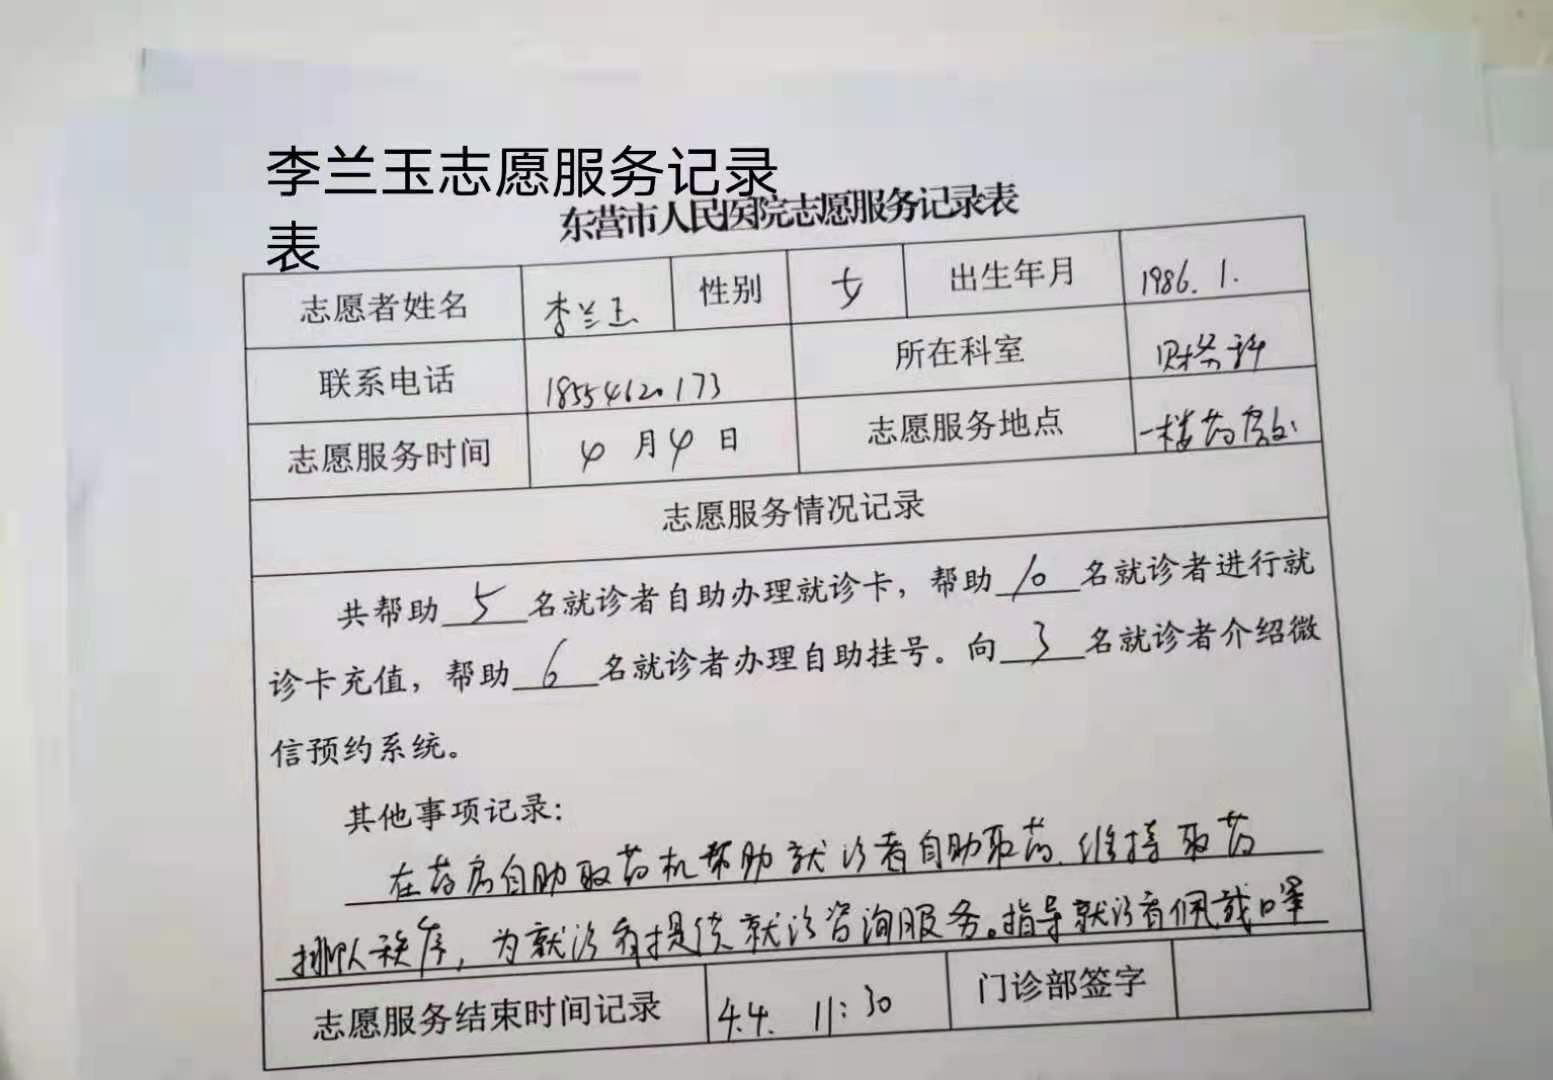 李兰玉志愿服务记录
表
东营市人民医院志愿服务记录表
志愿者姓名 李兰玉 性别 女 出生年月 1986.1.
联系电话 18554620173 所在科室 财务科
志愿服务时间 4月4日 志愿服务地点 一楼药房
志愿服务情况记录
共帮助5名就诊者自助办理就诊卡，帮助10名就诊者进行就
诊卡充值，帮助6名就诊者办理自助挂号。向3名就诊者介绍微
信预约系统。
其他事项记录：
在药房自助取药机帮助就诊者自助取药、维持取药
排队秩序，为就诊者提供就诊咨询服务。指导就诊者佩戴口罩
志愿服务结束时间记录 4.4. 11:30 门诊部签字